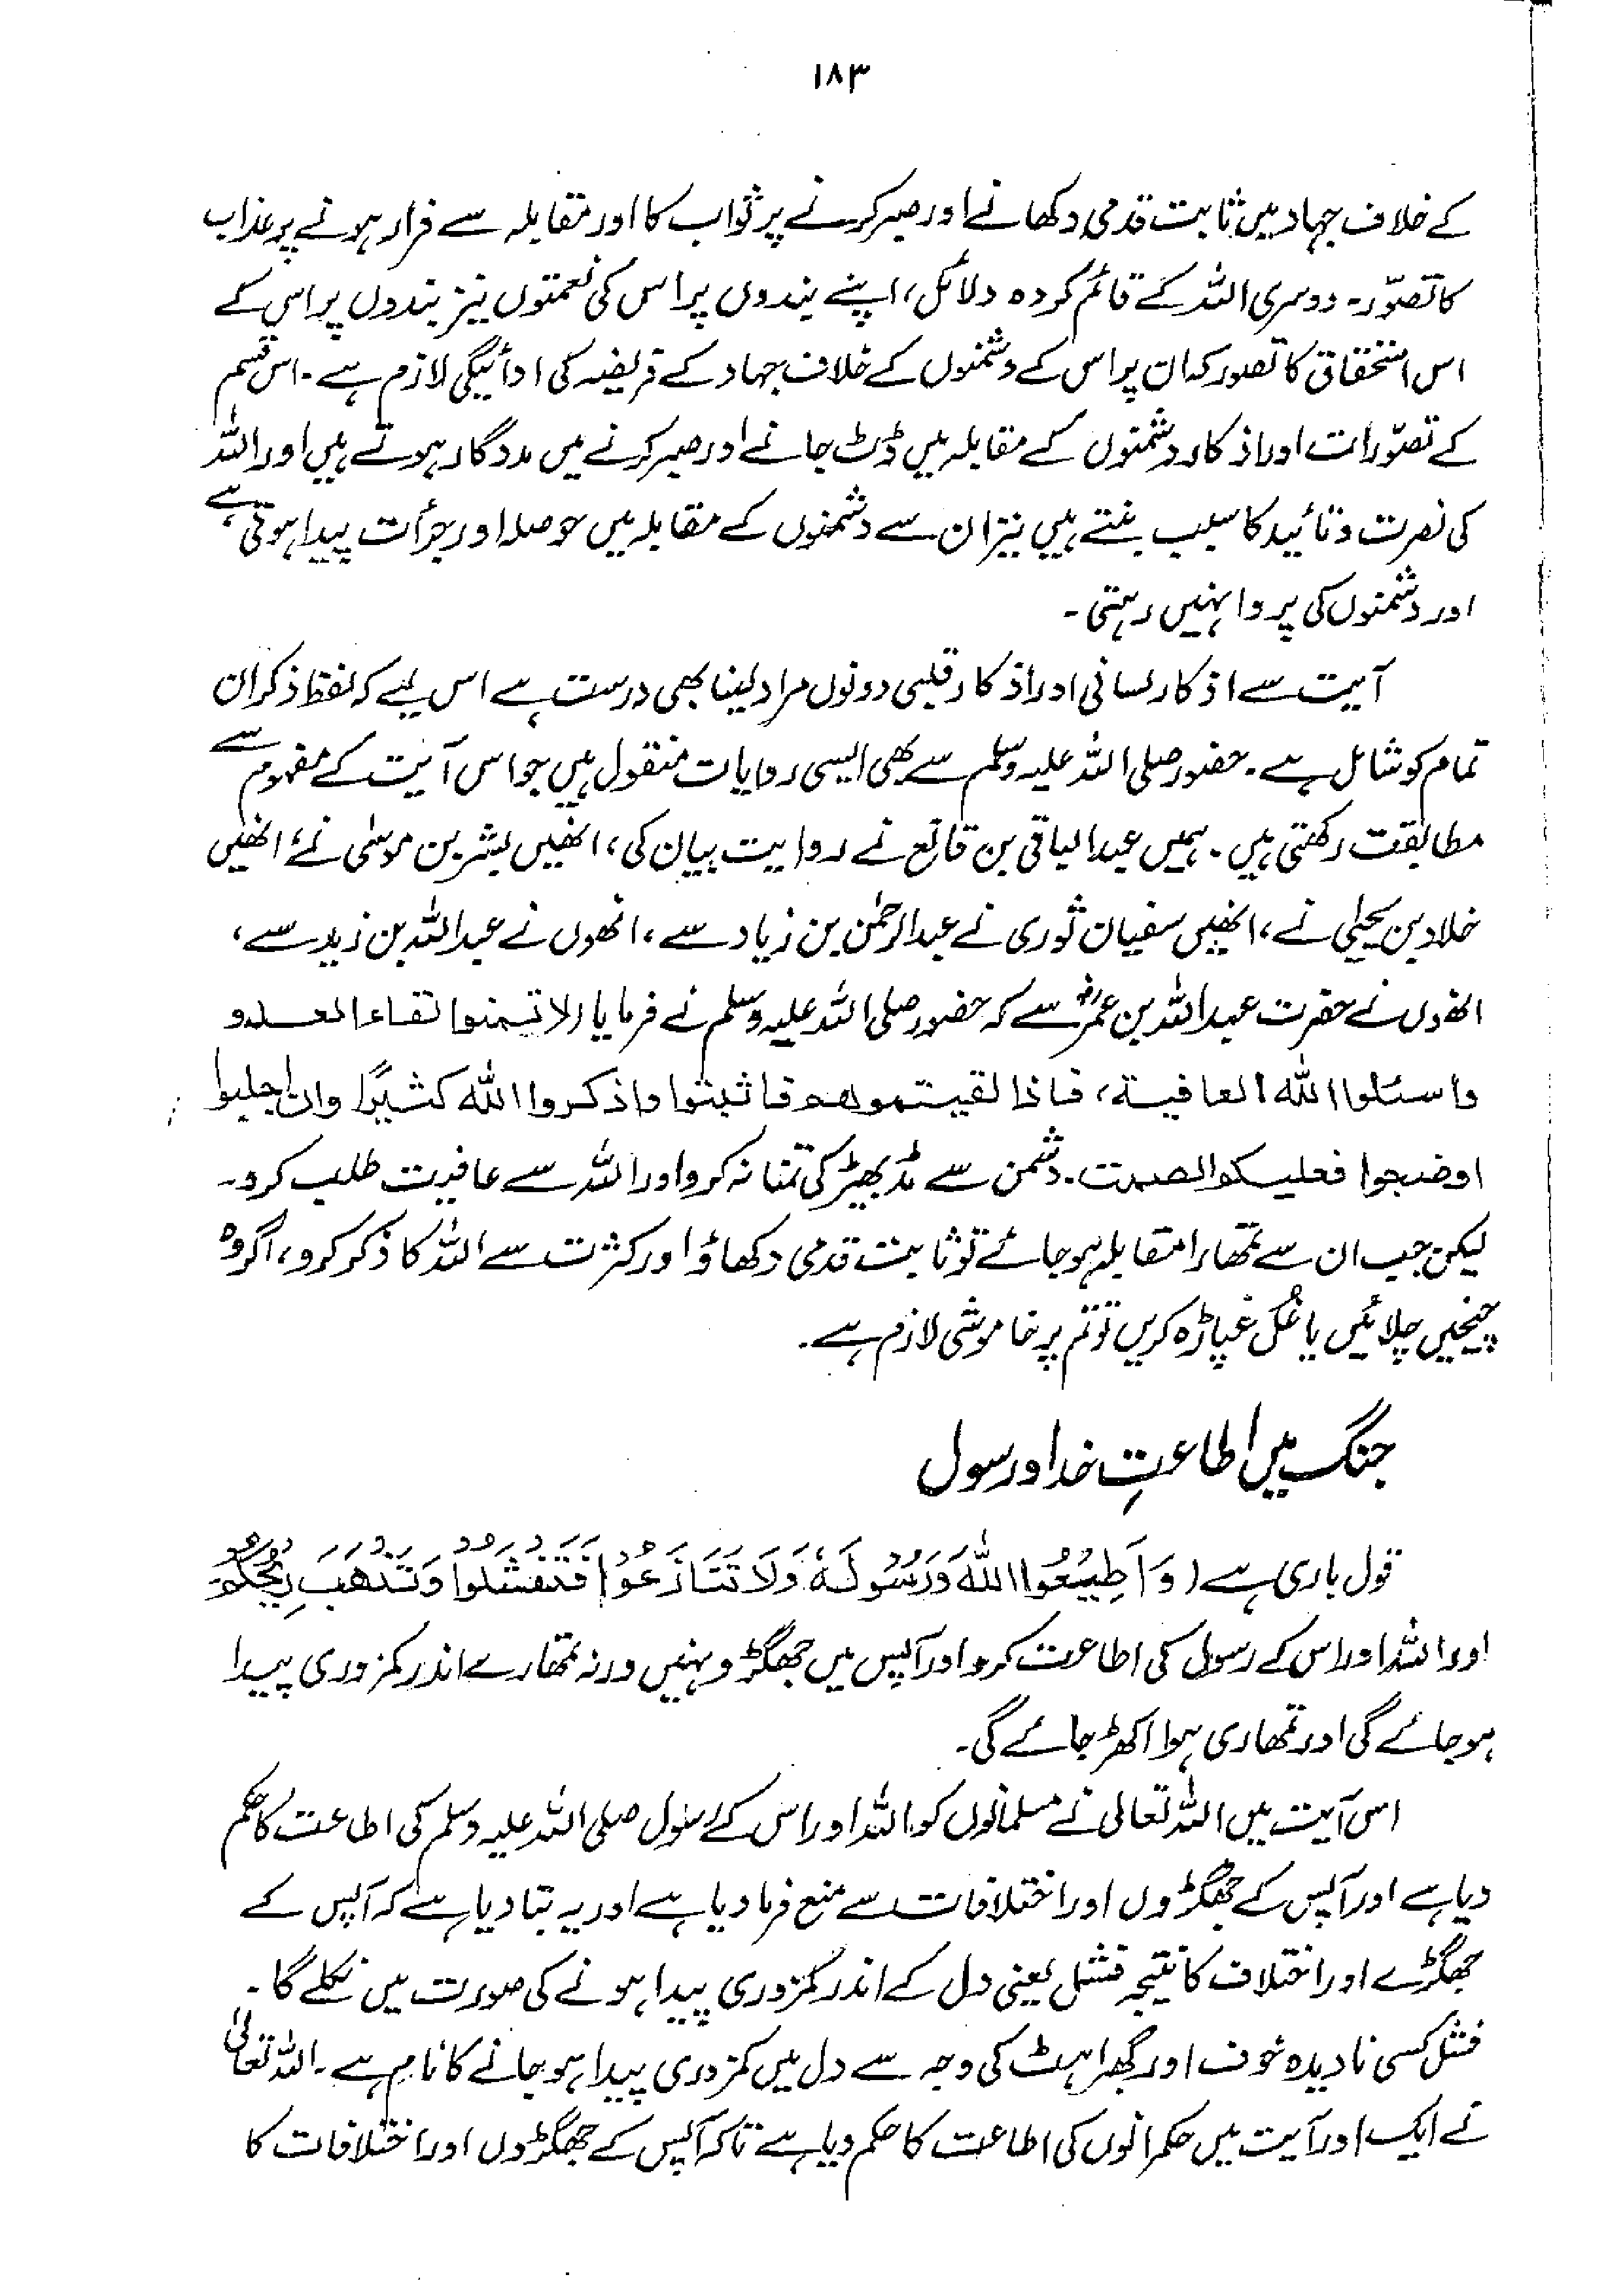 ۱۸۳
کے خلاف جہاد میں ثابت قدمی دکھانے اور صبر کرنے پر ثواب کا اور مقابلہ سے فرار ہونے پر عذاب
کا تصوّر۔ دوسری اللہ کے قائم کردہ دلائل، اپنے بندوں پر اس کی نعمتوں نیز بندوں پر اس کے
اس استحقاق کا تصور کہ ان پر اس کے دشمنوں کے خلاف جہاد کے فریضہ کی ادائیگی لازم ہے۔ اس قسم
کے تصوّرات اور اذکار دشمنوں کے مقابلہ میں ڈٹ جانے اور صبر کرنے میں مددگار ہوتے ہیں اور اللہ
کی نصرت و تائید کا سبب بنتے ہیں نیز ان سے دشمنوں کے مقابلہ میں حوصلہ اور جرأت پیدا ہوتی ہے
اور دشمنوں کی پروا نہیں رہتی۔
آیت سے اذکار لسانی اور اذکار قلبی دونوں مراد لینا بھی درست ہے اس لیے کہ لفظ ذکر ان
تمام کو شامل ہے۔ حضور صلی اللہ علیہ وسلم سے بھی ایسی روایات منقول ہیں جو اس آیت کے مفہوم سے
مطابقت رکھتی ہیں۔ ہمیں عبدالباقی بن قانع نے روایت بیان کی، انھیں بشر بن موسیٰ نے، انھیں
خلاد بن یحییٰ نے، انھیں سفیان ثوری نے عبدالرحمٰن بن زیاد سے، انھوں نے عبداللہ بن زید سے،
انھوں نے حضرت عبداللہ بن عمرؓ سے کہ حضور صلی اللہ علیہ وسلم نے فرمایا (لا تتمنوا لقاء العدو
واسئلوا اللہ العافیة، فاذا لقیتموھم فاثبتوا واذکروا اللہ کثیرًا وان اجلبوا
اوضجوا فعلیکم الصمت۔ دشمن سے مڈبھیڑ کی تمنا نہ کرو اور اللہ سے عافیت طلب کرو۔
لیکن جب ان سے تمھارا مقابلہ ہو جائے تو ثابت قدمی دکھاؤ اور کثرت سے اللہ کا ذکر کرو، اگر وہ
چیخیں چلائیں یا غُل غپاڑہ کریں تو تم پر خاموشی لازم ہے۔
جنگ میں اطاعتِ خدا و رسول
قول باری ہے (وَاَطِیْعُوا اللہَ وَرَسُوْلَہٗ وَلَا تَنَازَعُوْا فَتَفْشَلُوْا وَتَذْھَبَ رِیْحُکُمْ۔
اور اللہ اور اس کے رسول کی اطاعت کرو اور آپس میں جھگڑو نہیں ورنہ تمھارے اندر کمزوری پیدا
ہو جائے گی اور تمھاری ہوا اکھڑ جائے گی۔
اس آیت میں اللہ تعالیٰ نے مسلمانوں کو اللہ اور اس کے رسول صلی اللہ علیہ وسلم کی اطاعت کا حکم
دیا ہے اور آپس کے جھگڑوں اور اختلافات سے منع فرما دیا ہے اور یہ بتا دیا ہے کہ آپس کے
جھگڑے اور اختلاف کا نتیجہ فشل یعنی دل کے اندر کمزوری پیدا ہونے کی صورت میں نکلے گا۔
فشل کسی نادیدہ خوف اور گھبراہٹ کی وجہ سے دل میں کمزوری پیدا ہو جانے کا نام ہے۔ اللہ تعالیٰ
نے ایک اور آیت میں حکمرانوں کی اطاعت کا حکم دیا ہے تاکہ آپس کے جھگڑوں اور اختلافات کا